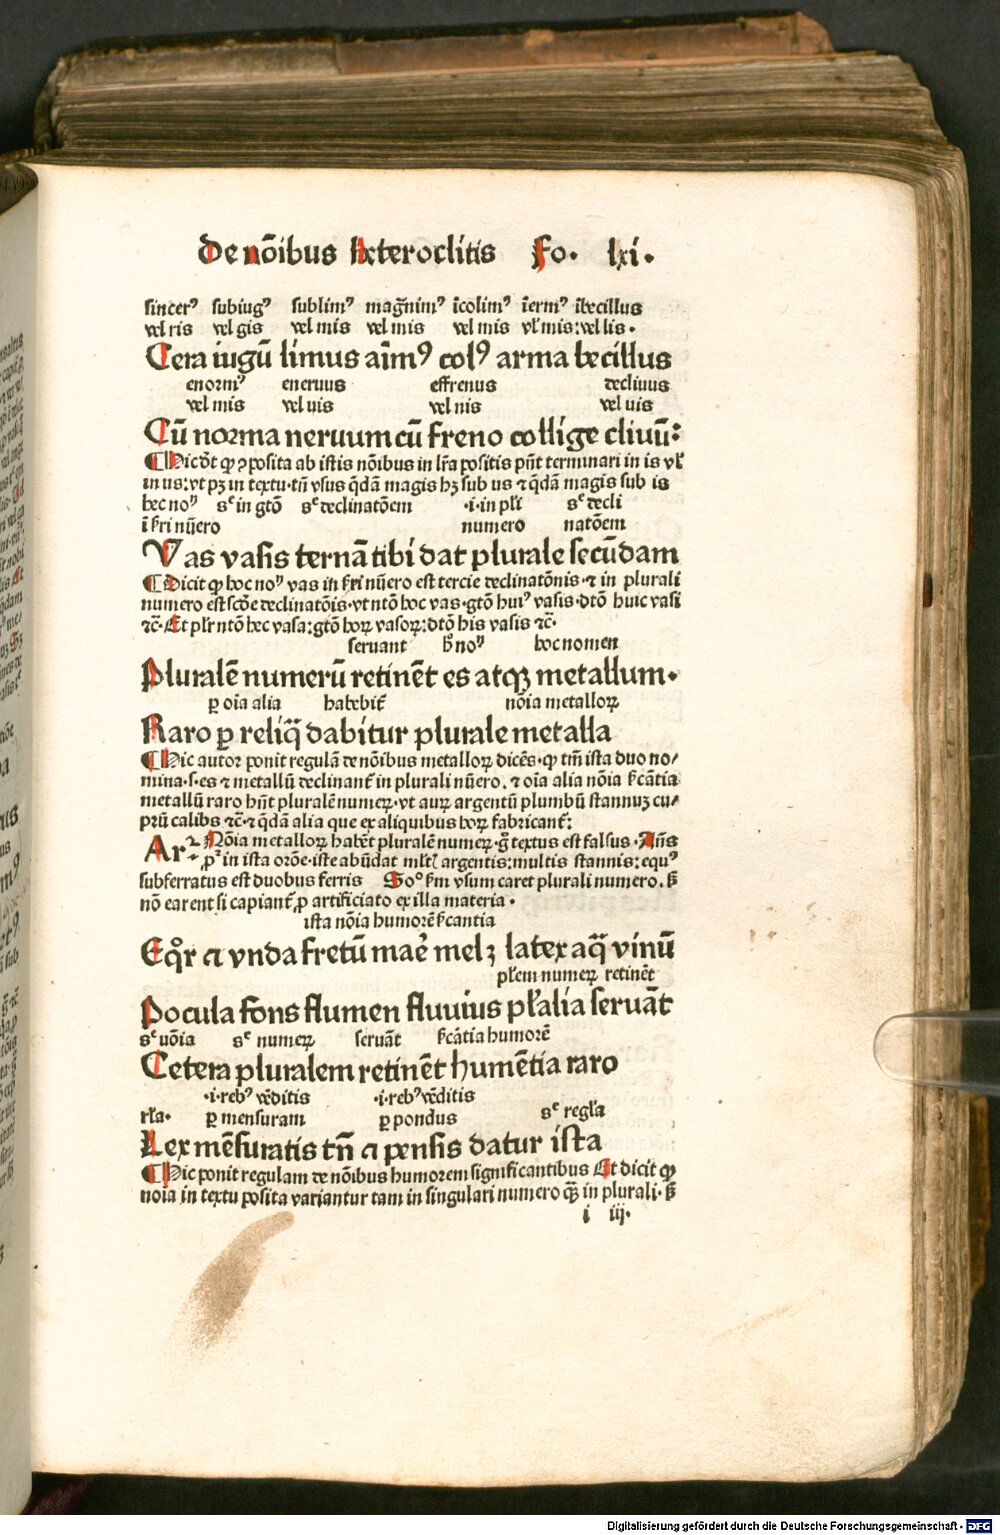 De nōibus heteroclitis Fo. lxi.
sincerꝰ subiugꝰ sublimꝰ magnīmꝰ īcolimꝰ īermꝰ ībecillus
vel ris vel gis vel mis vel mis vel mis vꝉ mis: vel lis.
Cera iugū limus aīmꝰ colꝰ arma becillus
enormꝰ eneruus effrenus decliuus
vel mis vel uis vel nis vel uis
Cū norma neruum cū freno collige cliuū:
¶ Hic dōt ꝙ ꝯposita ab istis nōibus in lr̄a positis pn̄t terminari in is vꝉ
in us: vt pꝫ in textu. tn̄ vsus q̄dā magis hꝫ sub us ⁊ q̄dā magis sub is
hec noꝫ sᵉ in gtō sᵉ declinatōem .i. in plī sᵉ decli
ī sr̄i nūero numero natōem
Vas vasis ternā tibi dat plurale secūdam
¶ Dicit ꝙ hoc noꝫ vas in sr̄i nūero est tercie declinatōnis. ⁊ in plurali
numero est scōe declinatōis. vt ntō hoc vas. gtō huiꝰ vasis. dtō huic vasi
⁊c̄. Et plr̄ ntō hec vasa: gtō hoꝝ vasoꝝ: dtō his vasis ⁊c̄.
seruant hͦ noꝫ hoc nomen
Pluralē numerū retinēt es atqꝫ metallum.
ꝑ oīa alia habebit̄ nōia metalloꝝ
Raro ꝑ reliq̄ dabitur plurale metalla
¶ Hic autor ponit regulā de nōibus metalloꝝ dicēs. ꝙ tm̄ ista duo no/
mina. s. es ⁊ metallū declinant̄ in plurali nūero. ⁊ oīa alia nōia s̄cātia
metallū raro hn̄t pluralē numeꝝ. vt auꝝ argentū plumbū stannuꝫ cu/
prū calibs ⁊c̄ ⁊ q̄dā alia que ex aliquibus hoꝝ fabricant̄:
Arꝛ Nōia metalloꝝ habēt pluralē numeꝝ. g̊ textus est falsus. Ans̄
ꝓꝛ in ista orōe. iste abūdat mlt̄ argentis: multis stannis: equꝰ
subferratus est duobus ferris Soᵒ sm̄ vsum caret plurali numero. s̄
nō earent si capiant̄ ꝓ artificiato ex illa materia.
ista nōia humorē s̄cantia
Eqͦr ⁊ vnda fretū mae mel ꝫ latex aq̄ vinū
pl̄em numeꝝ retinēt
Pocula fons flumen fluuius pl̄alia seruāt
sᵉ nōia sᵉ numeꝝ seruāt s̄cātia humorē
Cetera pluralem retinēt humētia raro
.i. rebꝰ vēditis .i. rebꝰ vēditis
rl̄a. ꝑ mensuram ꝑ pondus sᵉ regl̄a
Lex mēsuratis tn̄ ⁊ pensis datur ista
¶ Hic ponit regulam de nōibus humorem significantibus Et dicit ꝙ
noīa in textu posita variantur tam in singulari numero q̄ꝫ in plurali. s̄
i iij.
Digitalisierung gefördert durch die Deutsche Forschungsgemeinschaft - DFG